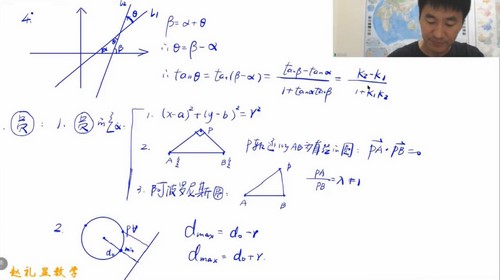 4.
l₂ l₁
θ
α β
β = α + θ
∴ θ = β - α
∴ tanθ = tan(β-α) = (tanβ - tanα)/(1 + tanα tanβ) = (k₂ - k₁)/(1 + k₁k₂)
二. 圆: 1. 圆
1. (x-a)² + (y-b)² = r²
2. P A B
P 以AB为直径的圆: PA·PB = 0
3. 阿波罗尼斯圆: P A B PA/PB = λ ≠ 1
2. d₀ min
dmax = d₀ - r
dmax = d₀ + r.
赵礼显数学